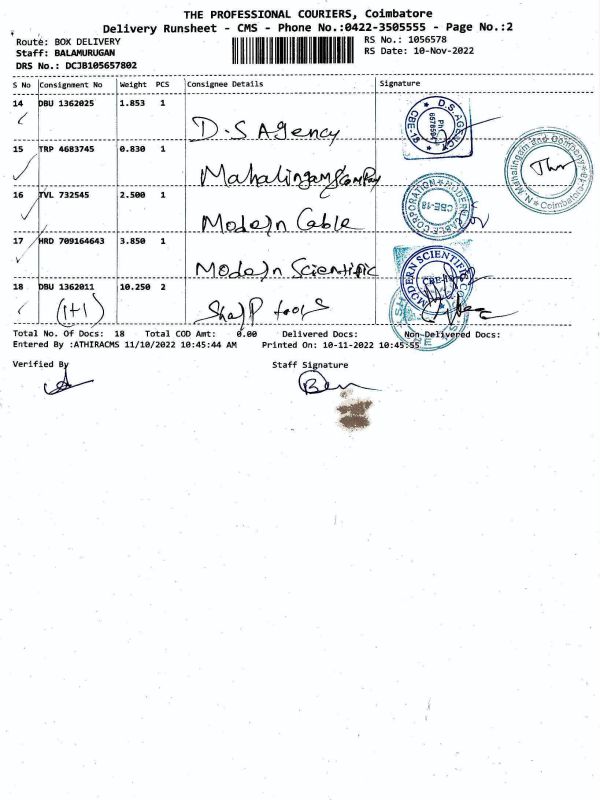 THE PROFESSIONAL COURIERS, Coimbatore
Delivery Runsheet - CMS - Phone No.:0422-3505555 - Page No.:2
Route: BOX DELIVERY RS No.: 1056578
Staff: BALAMURUGAN RS Date: 10-Nov-2022
DRS No.: DCJB105657802
S No Consignment No Weight PCS Consignee Details Signature
14 DBU 1362025 1.853 1
D.S Agency
D.S. AGENCY CBE-18
15 TRP 4683745 0.830 1
Mahalingam & Company
N. Mahalingam and Company Coimbatore
16 TVL 732545 2.500 1
Modern Cable
MODERN CABLE CORPORATION CBE-18
17 HRD 709164643 3.850 1
Modern Scientific
MODERN SCIENTIFIC CBE-18
18 DBU 1362011 10.250 2
(1+1) Sharp tools
Total No. Of Docs: 18 Total COD Amt: 0.00 Delivered Docs: Non-Delivered Docs:
Entered By :ATHIRACMS 11/10/2022 10:45:44 AM Printed On: 10-11-2022 10:45:55
Verified By Staff Signature